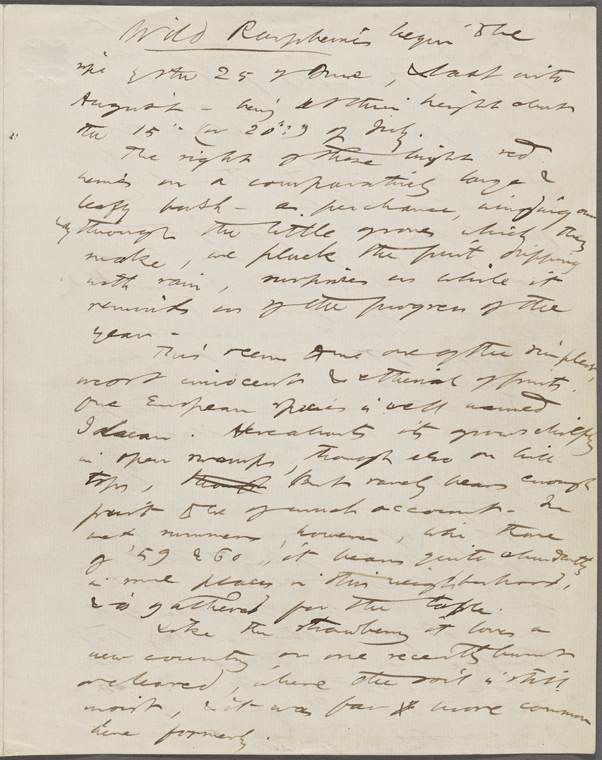 Wild Raspberries begin to be
ripe by the 25 of June, & last into
August — being at their height about
the 15th (or 20th?) of July.
The sight of these bright red
berries on a comparatively large &
leafy bush — as perchance, winding our
way through the little groves which they
make, we pluck the fruit dripping
with rain, surprises us while it
reminds us of the progress of the
year —
This seems to me one of the simplest,
most innocent & ethereal of fruits.
One European species is well named
Idaean. Hereabouts it grows chiefly
in open swamps, though also on hill
tops, but rarely bears enough
fruit to be of much account. In
wet summers, however, like those
of '59 & 60, it bears quite abundantly
in some places in this neighborhood,
& is gathered for the table.
Like the strawberry it loves a
new country or one recently burnt
or cleared, where the soil is still
moist, & it was far more common
here formerly.